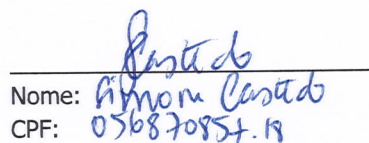 Castedo
Nome: Simone Castedo
CPF: 056870857.18